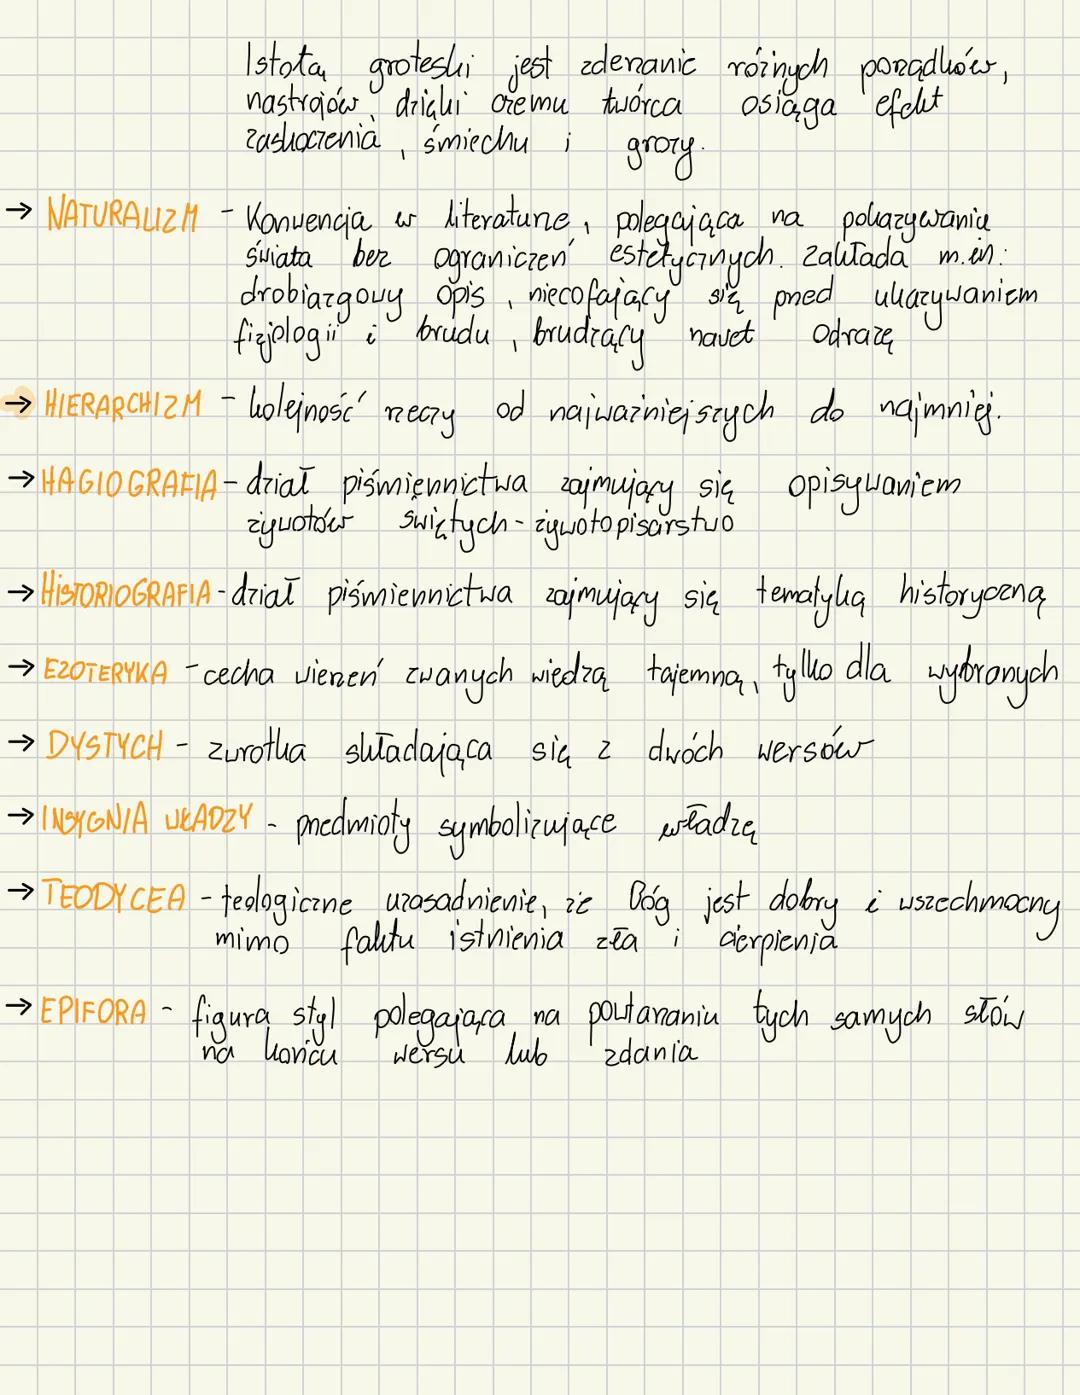 Istotą groteski jest zderzanie różnych porządków,
nastrojów, dzięki czemu twórca osiąga efekt
zaskoczenia, śmiechu i grozy.
→ NATURALIZM - Konwencja w literaturze, polegająca na pokazywaniu
świata bez ograniczeń estetycznych. Zakłada m.in:
drobiazgowy opis, niecofający się przed ukazywaniem
fizjologii i brudu, brudzący nawet odrazę
→ HIERARCHIZM - kolejność rzeczy od najważniejszych do najmniej.
→ HAGIOGRAFIA - dział piśmiennictwa zajmujący się opisywaniem
żywotów świętych - żywotopisarstwo
→ HISTORIOGRAFIA - dział piśmiennictwa zajmujący się tematyką historyczną
→ EZOTERYKA - cecha wierzeń zwanych wiedzą tajemną, tylko dla wybranych
→ DYSTYCH - zwrotka składająca się z dwóch wersów
→ INSYGNIA WŁADZY - przedmioty symbolizujące władzę
→ TEODYCEA - teologiczne uzasadnienie, że Bóg jest dobry i wszechmocny
mimo faktu istnienia zła i cierpienia
→ EPIFORA - figura styl polegająca na powtarzaniu tych samych słów
na końcu wersu lub zdania